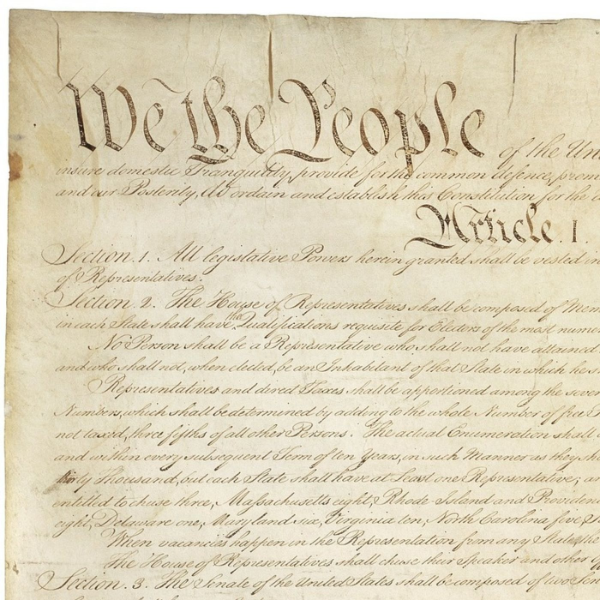 We the People of the Uni
insure domestic Tranquility, provide for the common defence, prom
and our Posterity, do ordain and establish this Constitution for the
Article. I.
Section. 1. All legislative Powers herein granted shall be vested in
of Representatives.
Section. 2. The House of Representatives shall be composed of Mem
in each State shall have the Qualifications requisite for Electors of the most numer
No Person shall be a Representative who shall not have attained
and who shall not, when elected, be an Inhabitant of that State in which he s
Representatives and direct Taxes shall be apportioned among the seve
Numbers, which shall be determined by adding to the whole Number of free
not taxed, three fifths of all other Persons. The actual Enumeration shall
and within every subsequent Term of ten Years, in such Manner as they sh
thirty Thousand, but each State shall have at Least one Representative; an
entitled to chuse three, Massachusetts eight, Rhode Island and Providenc
eight, Delaware one, Maryland six, Virginia ten, North Carolina five, S
When vacancies happen in the Representation from any State, the
The House of Representatives shall chuse their Speaker and other of
Section. 3. The Senate of the United States shall be composed of two Sen